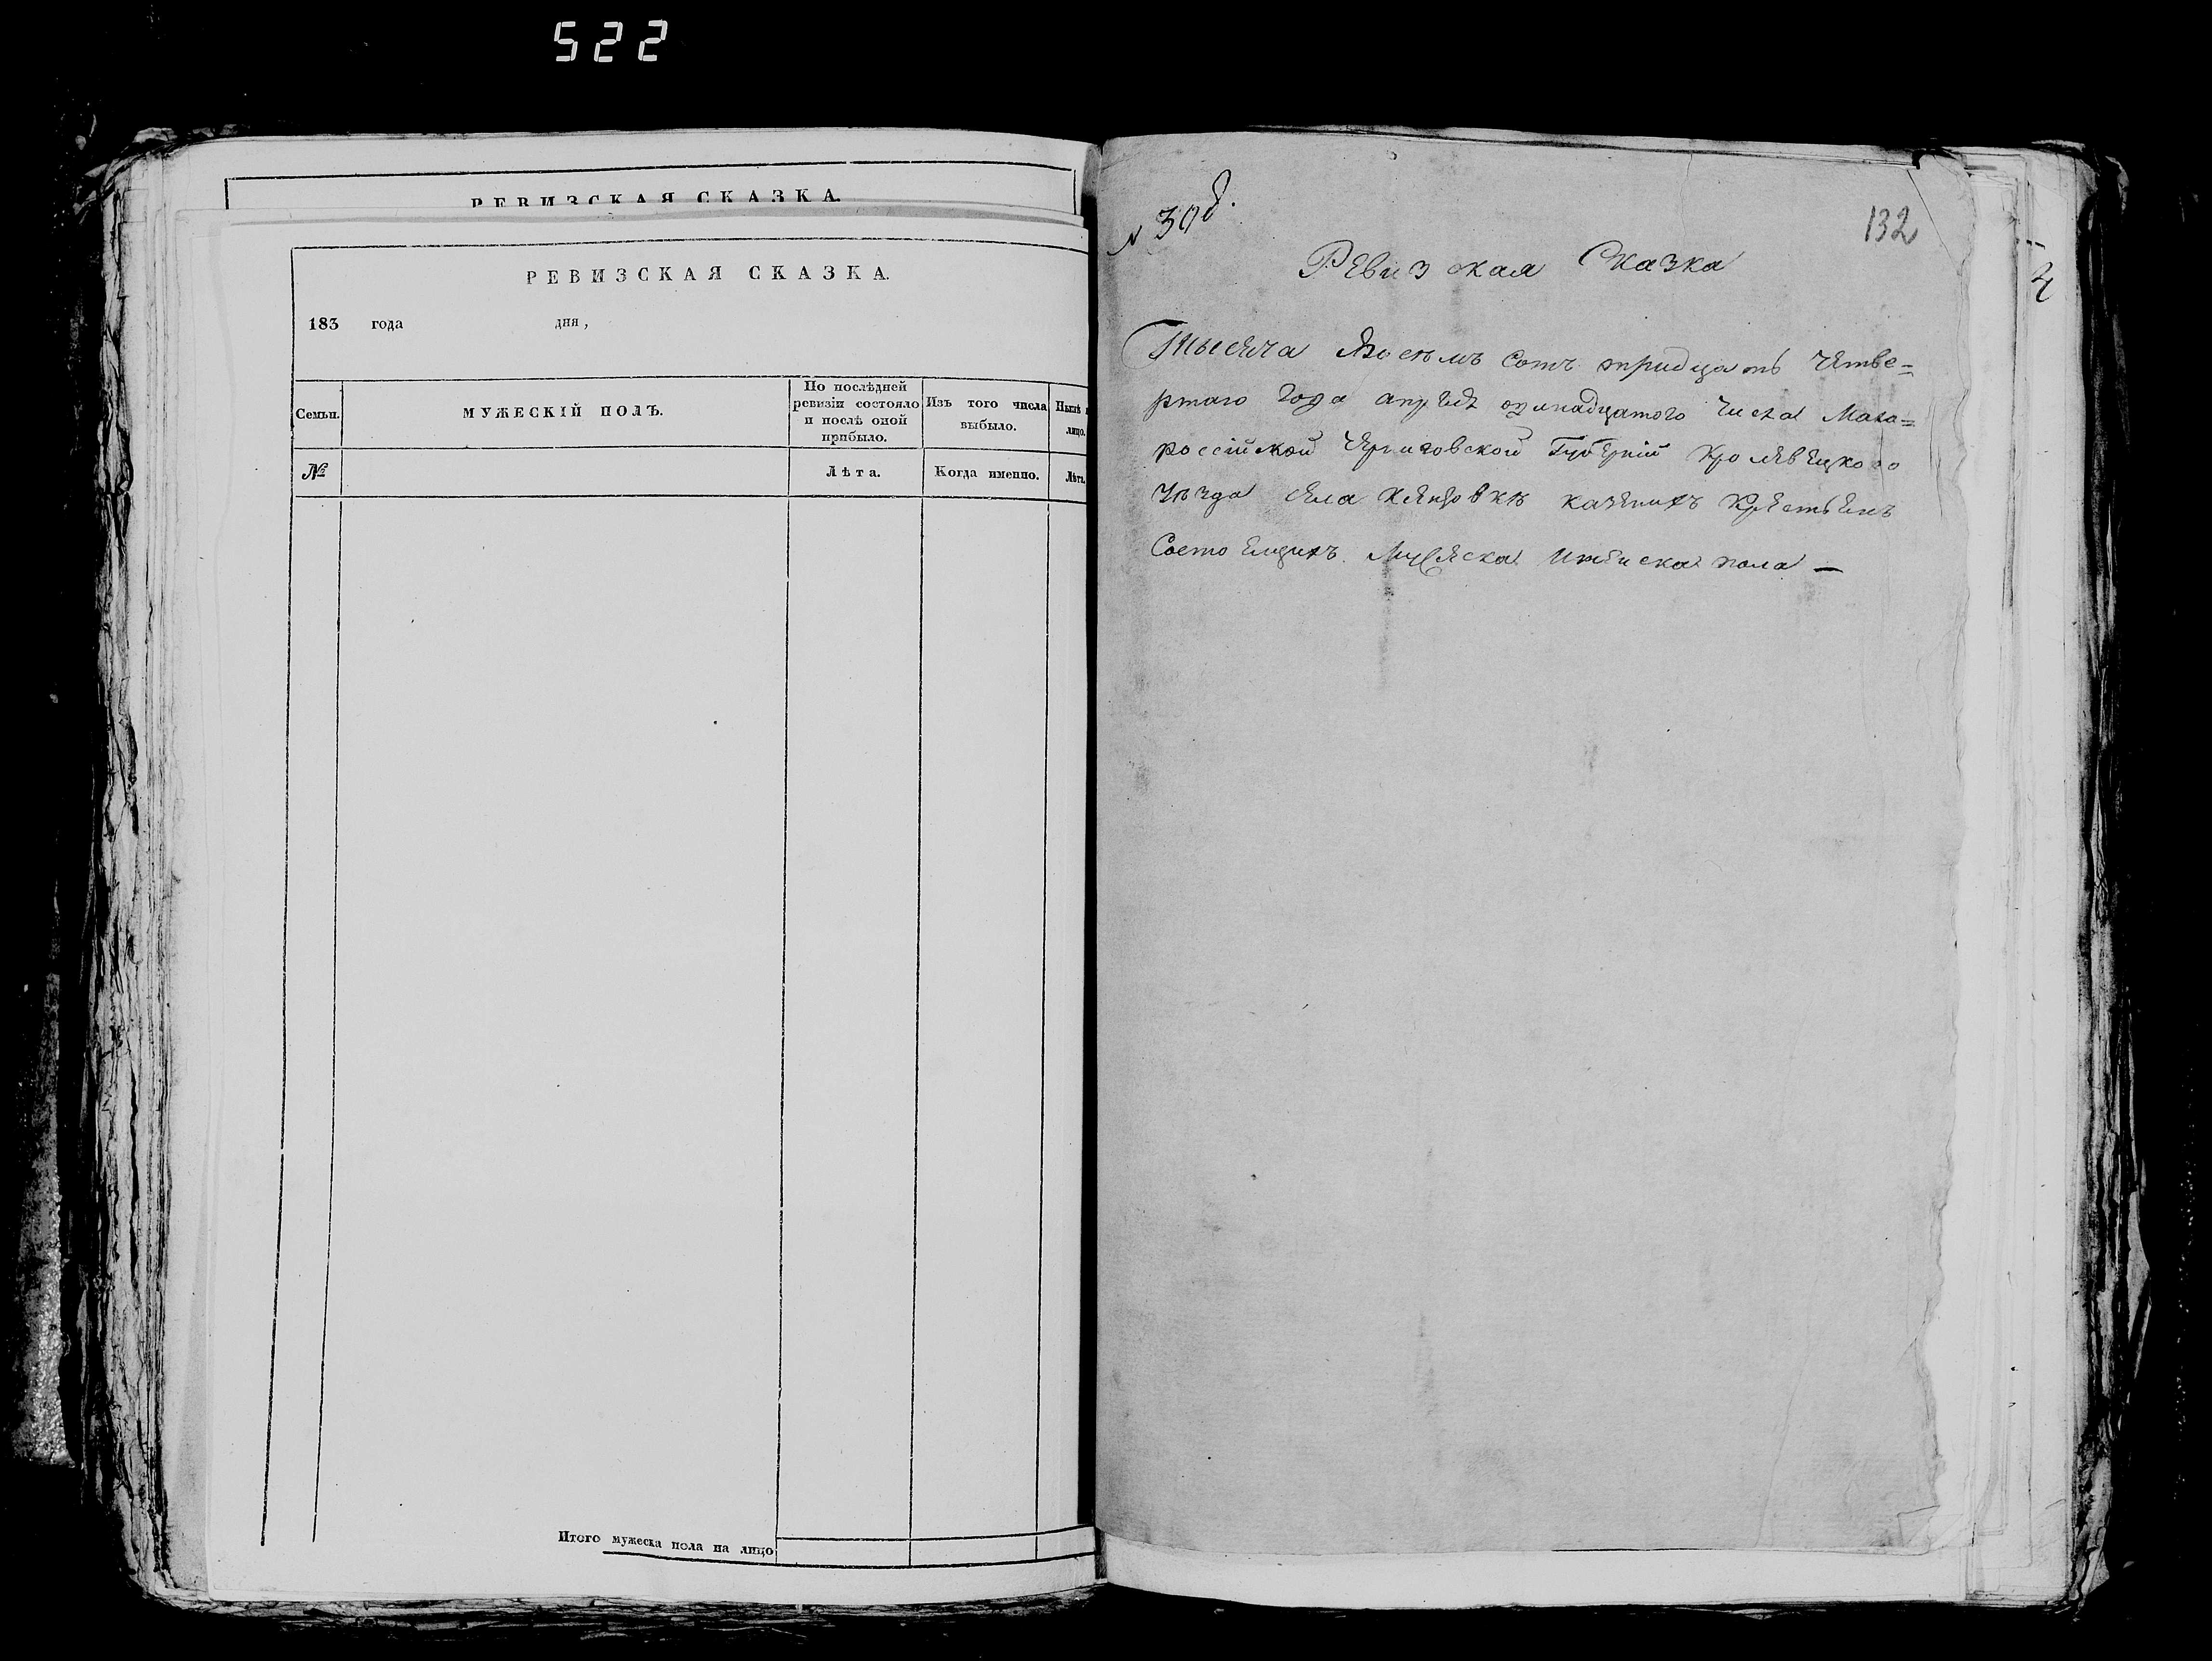 522
РЕВИЗСКАЯ СКАЗКА.
РЕВИЗСКАЯ СКАЗКА.
183 года дня,
Семьи.
МУЖЕСКІЙ ПОЛЪ.
По послѣдней ревизіи состояло и послѣ оной прибыло.
Изъ того числа выбыло.
Нынѣ
лицо.
№
Лѣта.
Когда именно.
Лѣта.
Итого мужеска пола на лицо
132
Ревизская Сказка
Тысеча Восемъ Сотъ тридцать Четве=
ртаго Года апреля одинадцатого Числа Мало=
россійской Черниговской Губерніи Кролевецкого
уезда села казених Крестьенъ
Состоещихъ Мужеска пола —